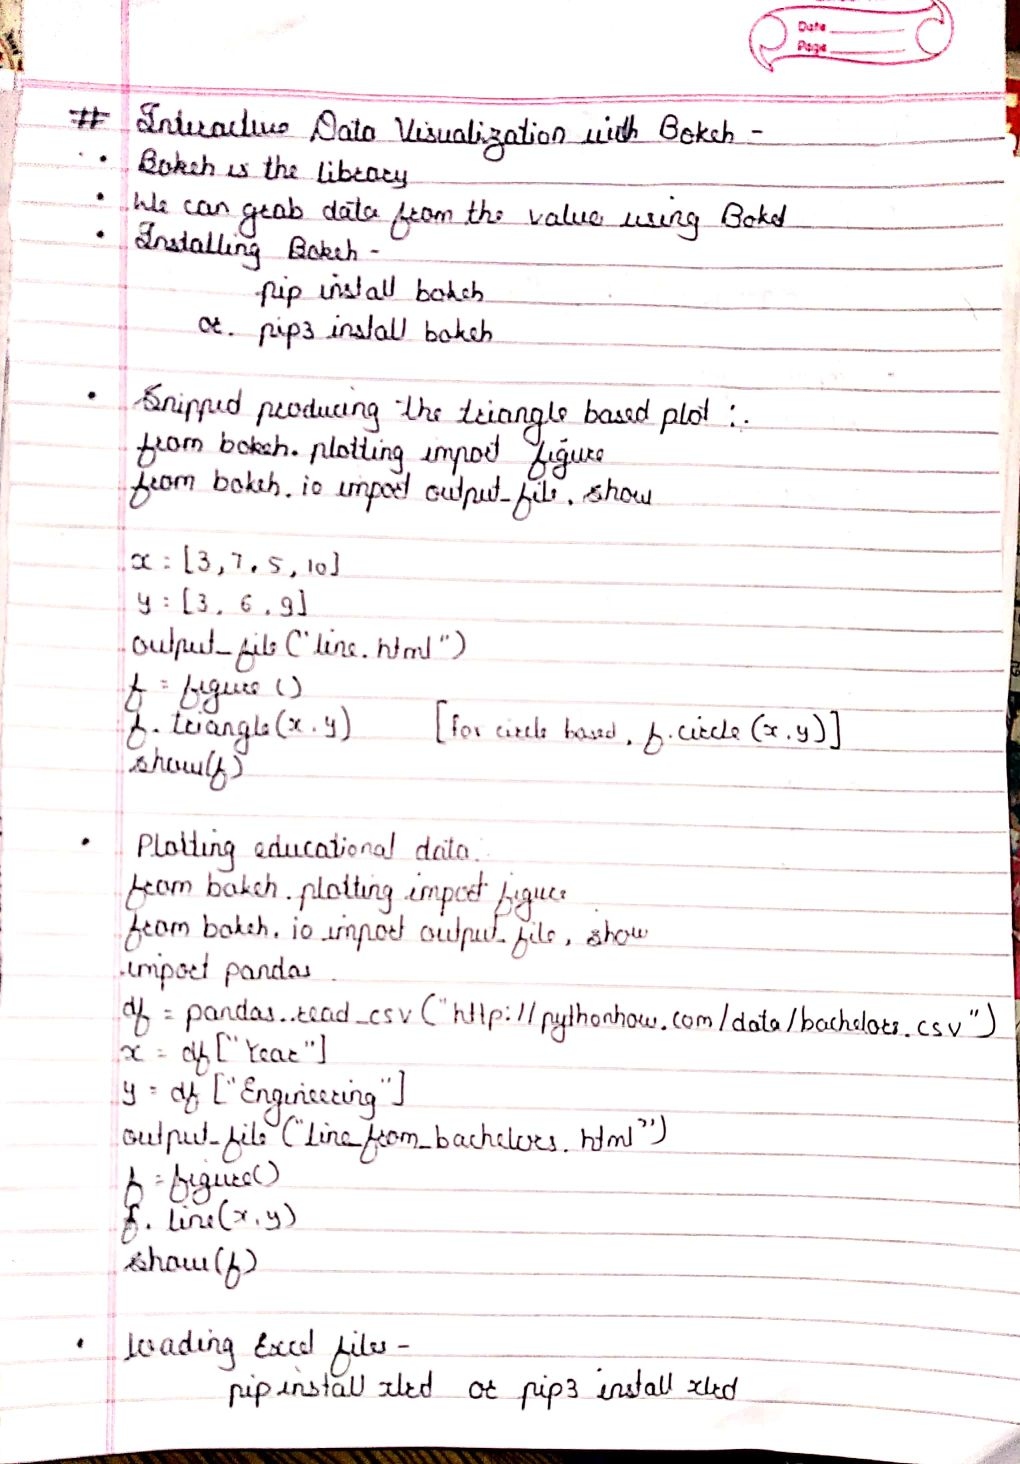 Date
Page
# Interactive Data Visualization with Bokeh -
• Bokeh is the library
• We can grab data from the value using Boked
• Installing Bokeh -
pip install bokeh
or. pip3 install bokeh
• Snipped producing the triangle based plot :.
from bokeh. plotting import figure
from bokeh. io import output_file, show
x = [3, 7, 5, 10]
y = [3, 6, 9]
output_file ("line.html")
f = figure ()
f. triangle (x,y) [For circle based, f.circle (x,y)]
show(f)
• Plotting educational data.
from bokeh. plotting import figure
from bokeh. io import output_file, show
import pandas
df = pandas..read_csv ("http://pythonhow.com/data/bachelors.csv")
x = df ["Year"]
y = df ["Engineering"]
output_file ("Line_from_bachelors. html")
f = figure()
f. line(x,y)
show(f)
• Loading Excel files -
pip install xlrd or pip3 install xlrd